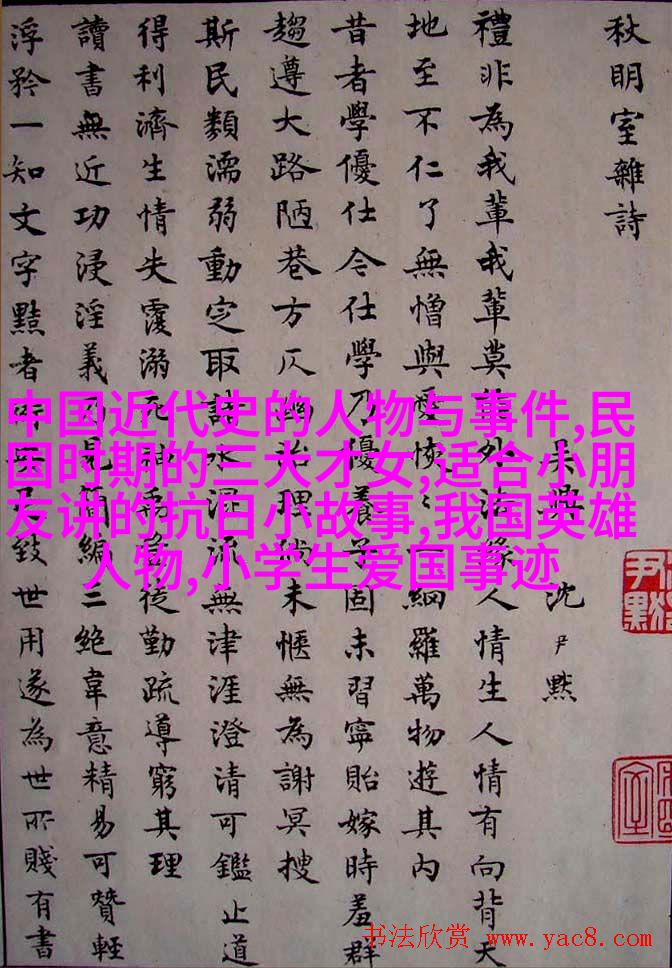 秋明室雜詩
吳興 沈尹默
禮非為我輩我輩莫外緣人情生人情有向背天
地至不仁了無憎與愛恢恢一網羅萬物遊其內
昔者學優仕今仕學乃優養子固未習寧貽嫁時羞群
趨遵大路陋巷方仄幽治理未愜無為謝冥搜
斯民類濡弱動定取諸水混流無津涯澄清可鑑止道
得利濟生情失覆溺死神禹豈徒勤疏導窮其理
讀書無近功浸淫義乃見簡編三絕韋意精易可贊輕
浮矜一知文字黠者致世用遂為世所賤有書
中国近代史的人物与事件,民
国时期的三大才女,适合小朋
友讲的抗日小故事,我国英雄
人物,小学生爱国事迹
尹默
书法欣赏 www.yac8.com